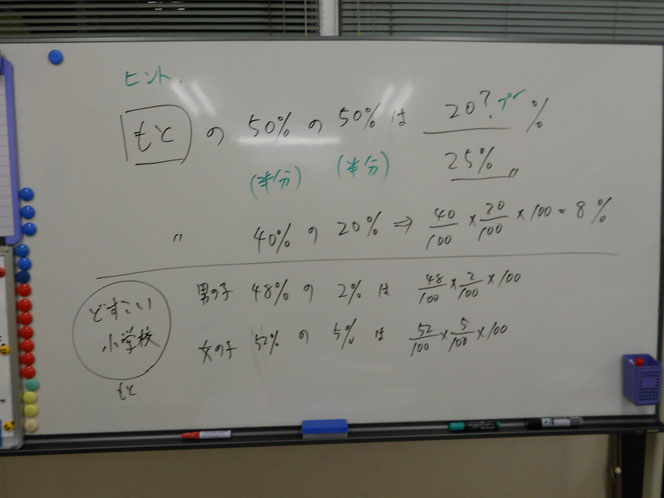 ヒント.
もと の 50% の 50% は 20? %
(半分) (半分) 25%〃
〃 40% の 20% ⇒ 40/100 × 20/100 × 100 = 8 %
どすこい小学校
もと
男の子 48% の 2% は 48/100 × 2/100 × 100
女の子 52% の 5% は 52/100 × 5/100 × 100